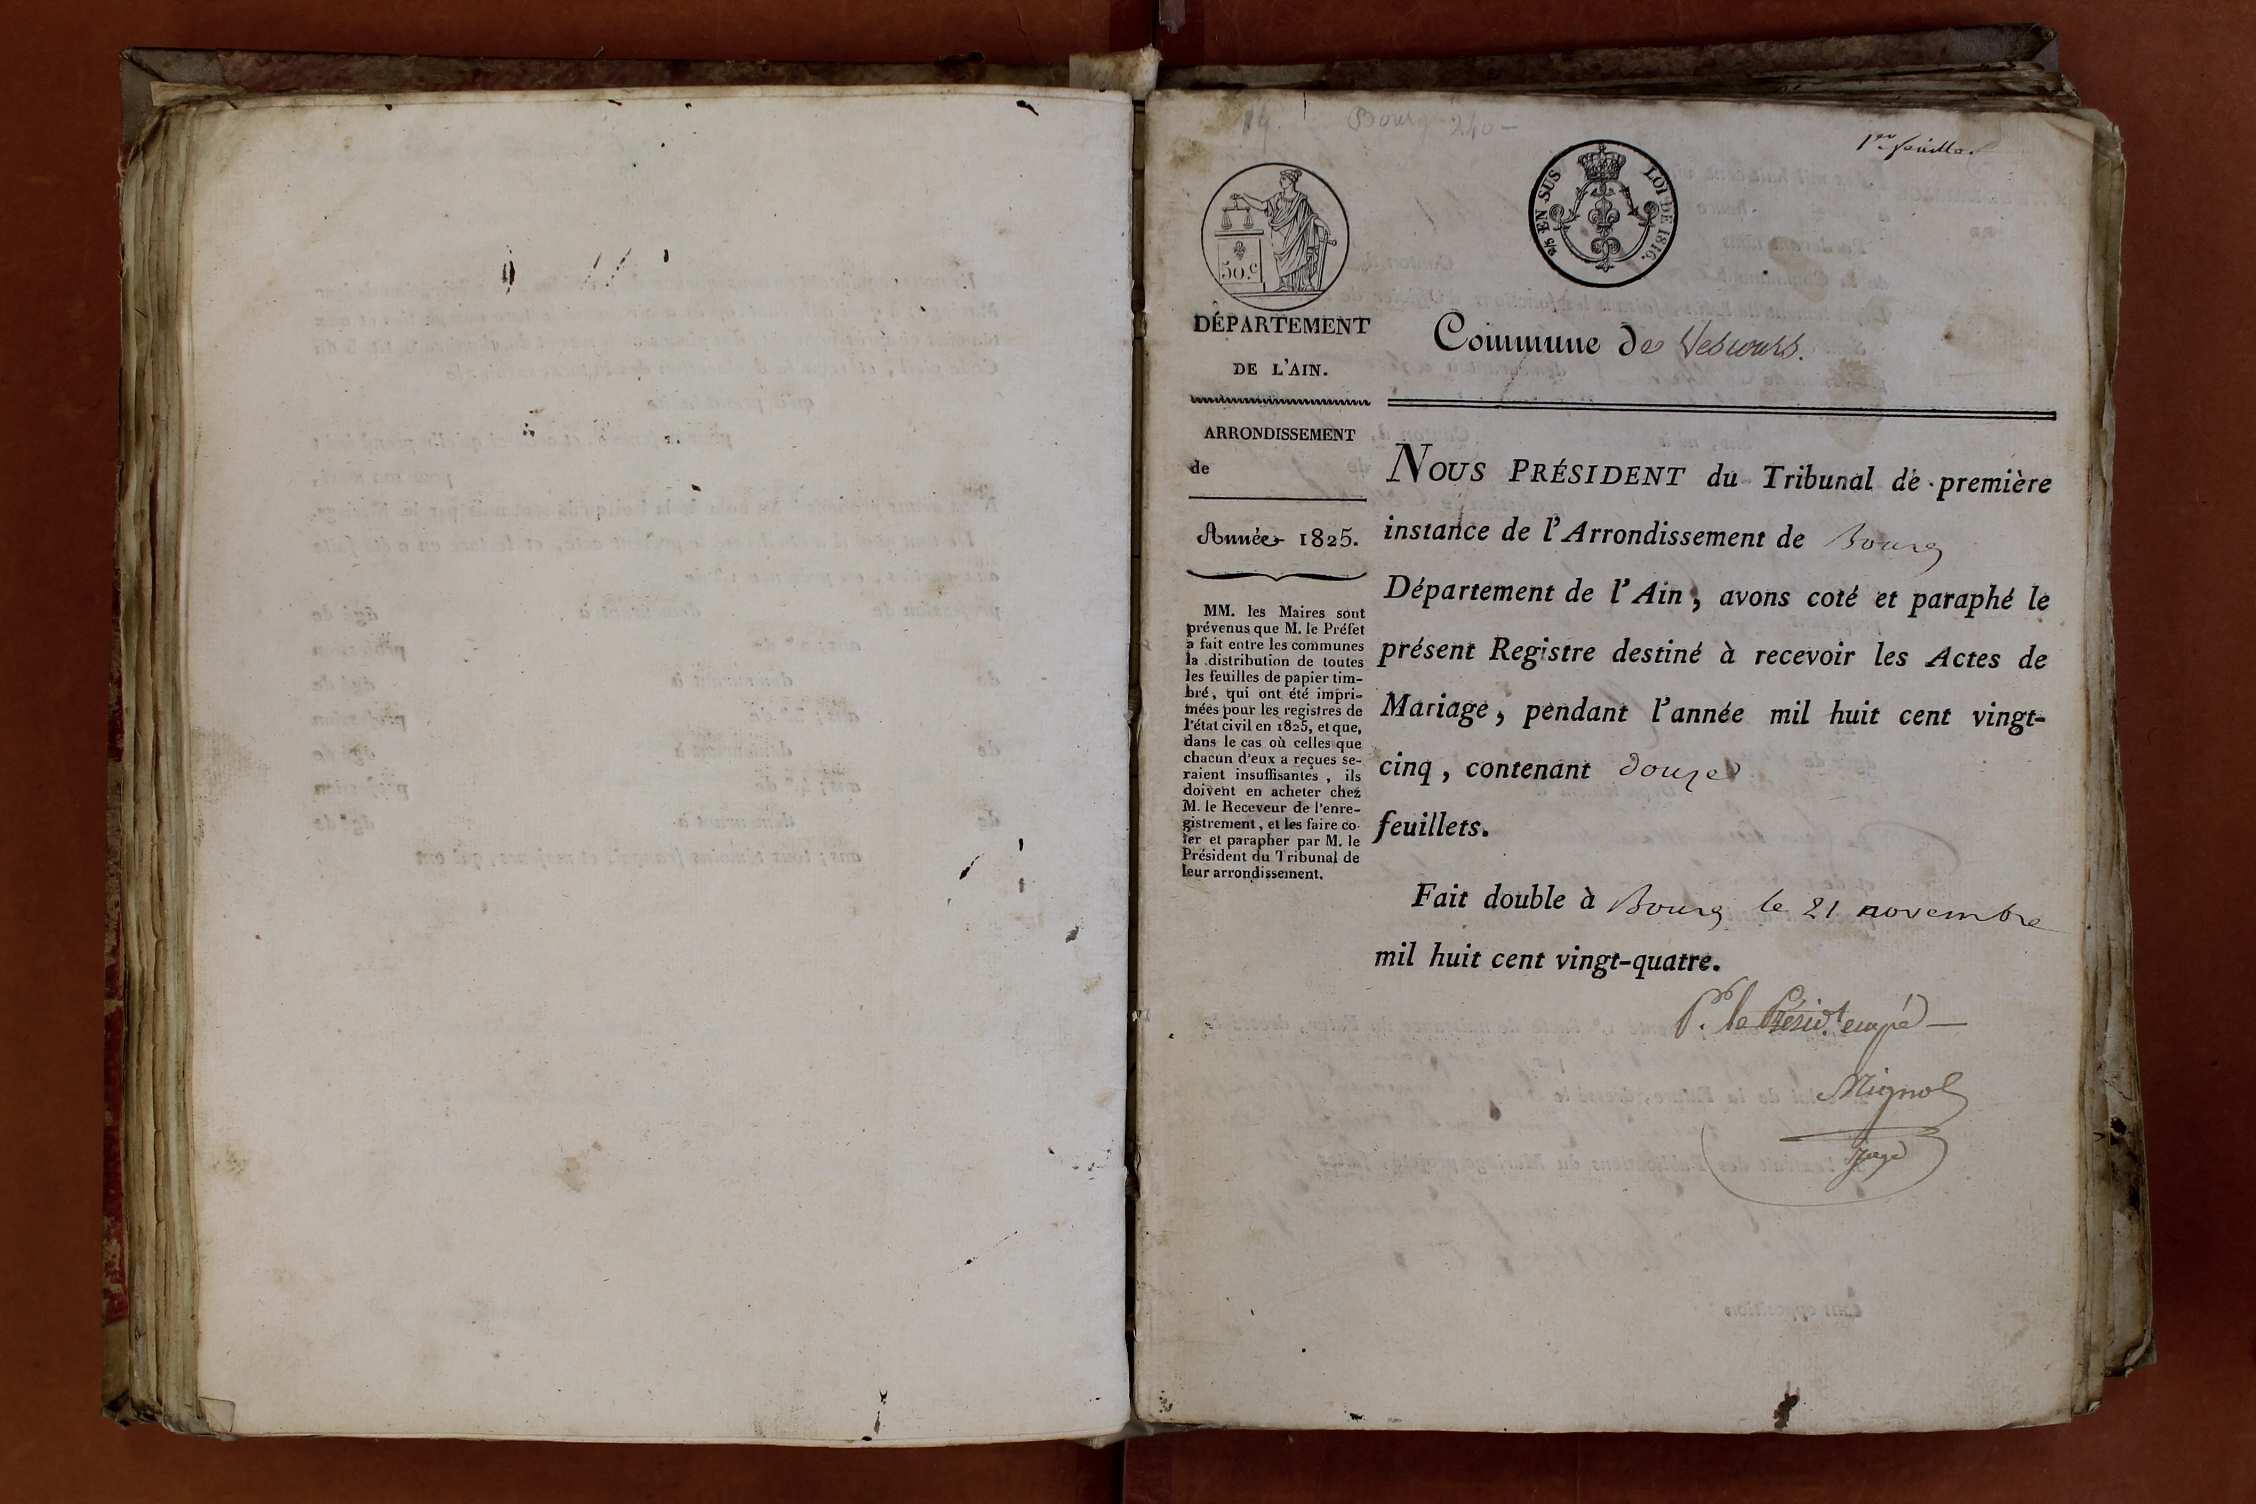 14. Bourg 240 –
1er feuillet
50.c
2/5 EN SUS LOI DE 1816.
DÉPARTEMENT
DE L'AIN.
Commune de Vescours.
ARRONDISSEMENT
de
Année 1825.
MM. les Maires sont
prévenus que M. le Préfet
a fait entre les communes
la distribution de toutes
les feuilles de papier tim-
bré, qui ont été impri-
mées pour les registres de
l'état civil en 1825, et que,
dans le cas où celles que
chacun d'eux a reçues se-
raient insuffisantes, ils
doivent en acheter chez
M. le Receveur de l'enre-
gistrement, et les faire co-
ter et parapher par M. le
Président du Tribunal de
leur arrondissement.
NOUS PRÉSIDENT du Tribunal de première
instance de l'Arrondissement de Bourg
Département de l'Ain, avons coté et paraphé le
présent Registre destiné à recevoir les Actes de
Mariage, pendant l'année mil huit cent vingt-
cinq, contenant douze
feuillets.
Fait double à Bourg le 21 novembre
mil huit cent vingt-quatre.
Pr. le Présidt. empé –
Mignot
Juge